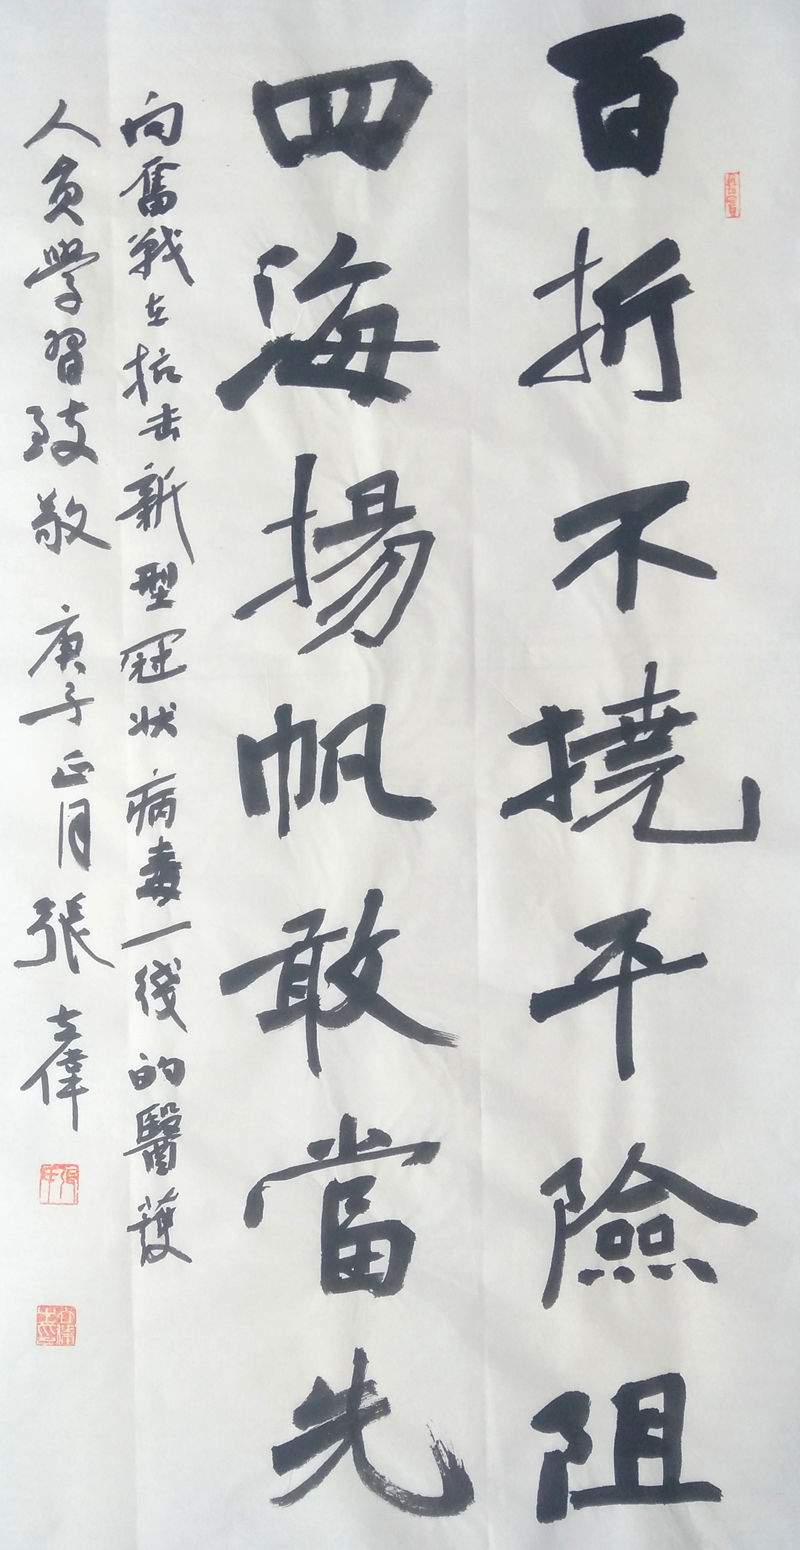 百折不撓平險阻
四海揚帆敢當先
向奮戰在抗击新型冠状病毒一线的醫護
人員學習致敬 庚子正月 張立偉